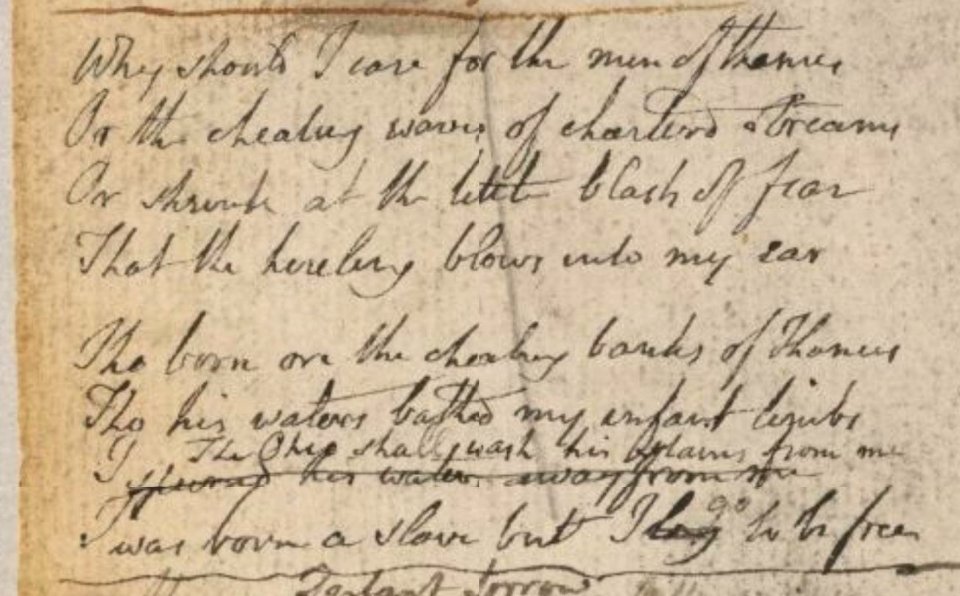 Why should I care for the men of thames
Or the cheating waves of charterd streams
Or shrink at the little blasts of fear
That the hireling blows into my ear
Tho born on the cheating banks of Thames
Tho his waters bathed my infant limbs
The Ohio shall wash his stains from me
I spurnd his waters away from me
I was born a slave but I long go to be free
Infant Sorrow